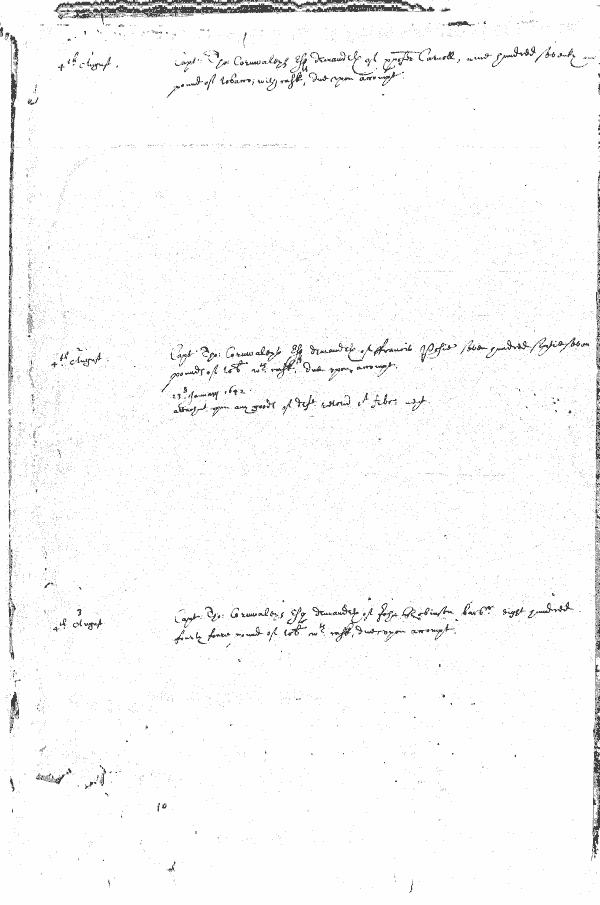 4th August. Capt Tho: Cornwaleys Esq demandeth of Carroll, nine hundred seventy
pound of tobacco, wth cask, due upon accompt.
4th August. Capt Tho: Cornwaleys Esq demandeth of ffrancis Posie seven hundred seven
pounds of tob. wth cask, due upon accompt.
23th January 1642.
attachmt upon any goods of deft 1st febr: next
4th August Capt Tho: Cornwaleys Esq demandeth of John Robinson barbr eight hundred
forty foure pound of tob wth cask, due upon accompt.
10